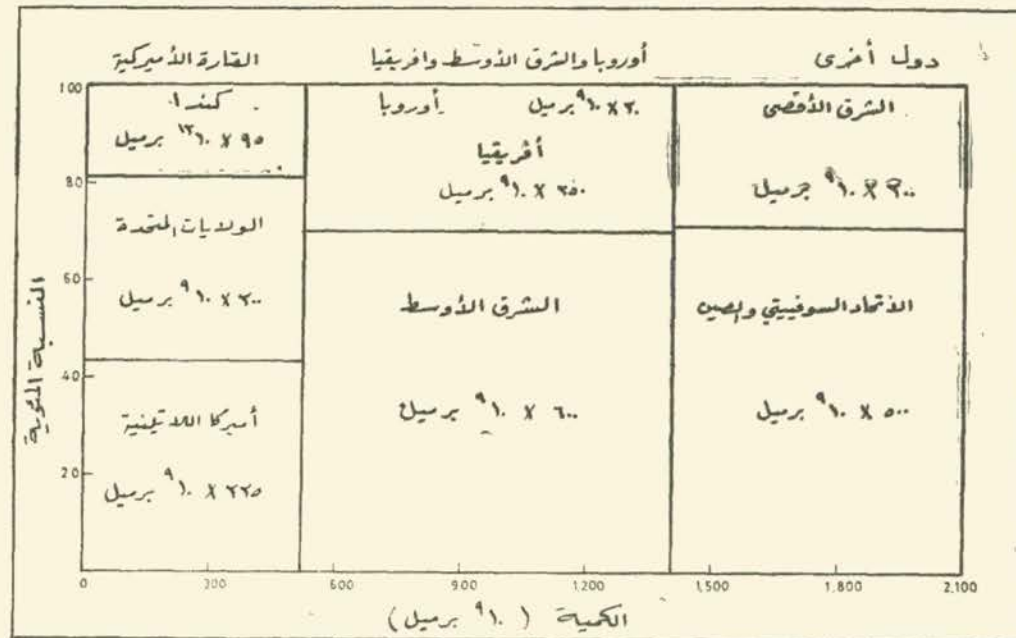 القارة الأميركية
أوروبا والشرق الأوسط وافريقيا
دول أخرى
النسبة المئوية
100
80
60
40
20
كندا
٩٥ × ١٠¹² برميل
الولايات المتحدة
٢٠٠ × ١٠⁹ برميل
أميركا اللاتينية
٢٢٥ × ١٠⁹ برميل
أوروبا ٢٠ × ١٠⁹ برميل
أفريقيا
٢٥٠ × ١٠⁹ برميل
الشرق الأوسط
٦٠٠ × ١٠⁹ برميل
الشرق الأقصى
٢٠٠ × ١٠⁹ برميل
الاتحاد السوفييتي والصين
٥٠٠ × ١٠⁹ برميل
0 300 600 900 1,200 1,500 1,800 2,100
الكمية (١٠⁹ برميل)